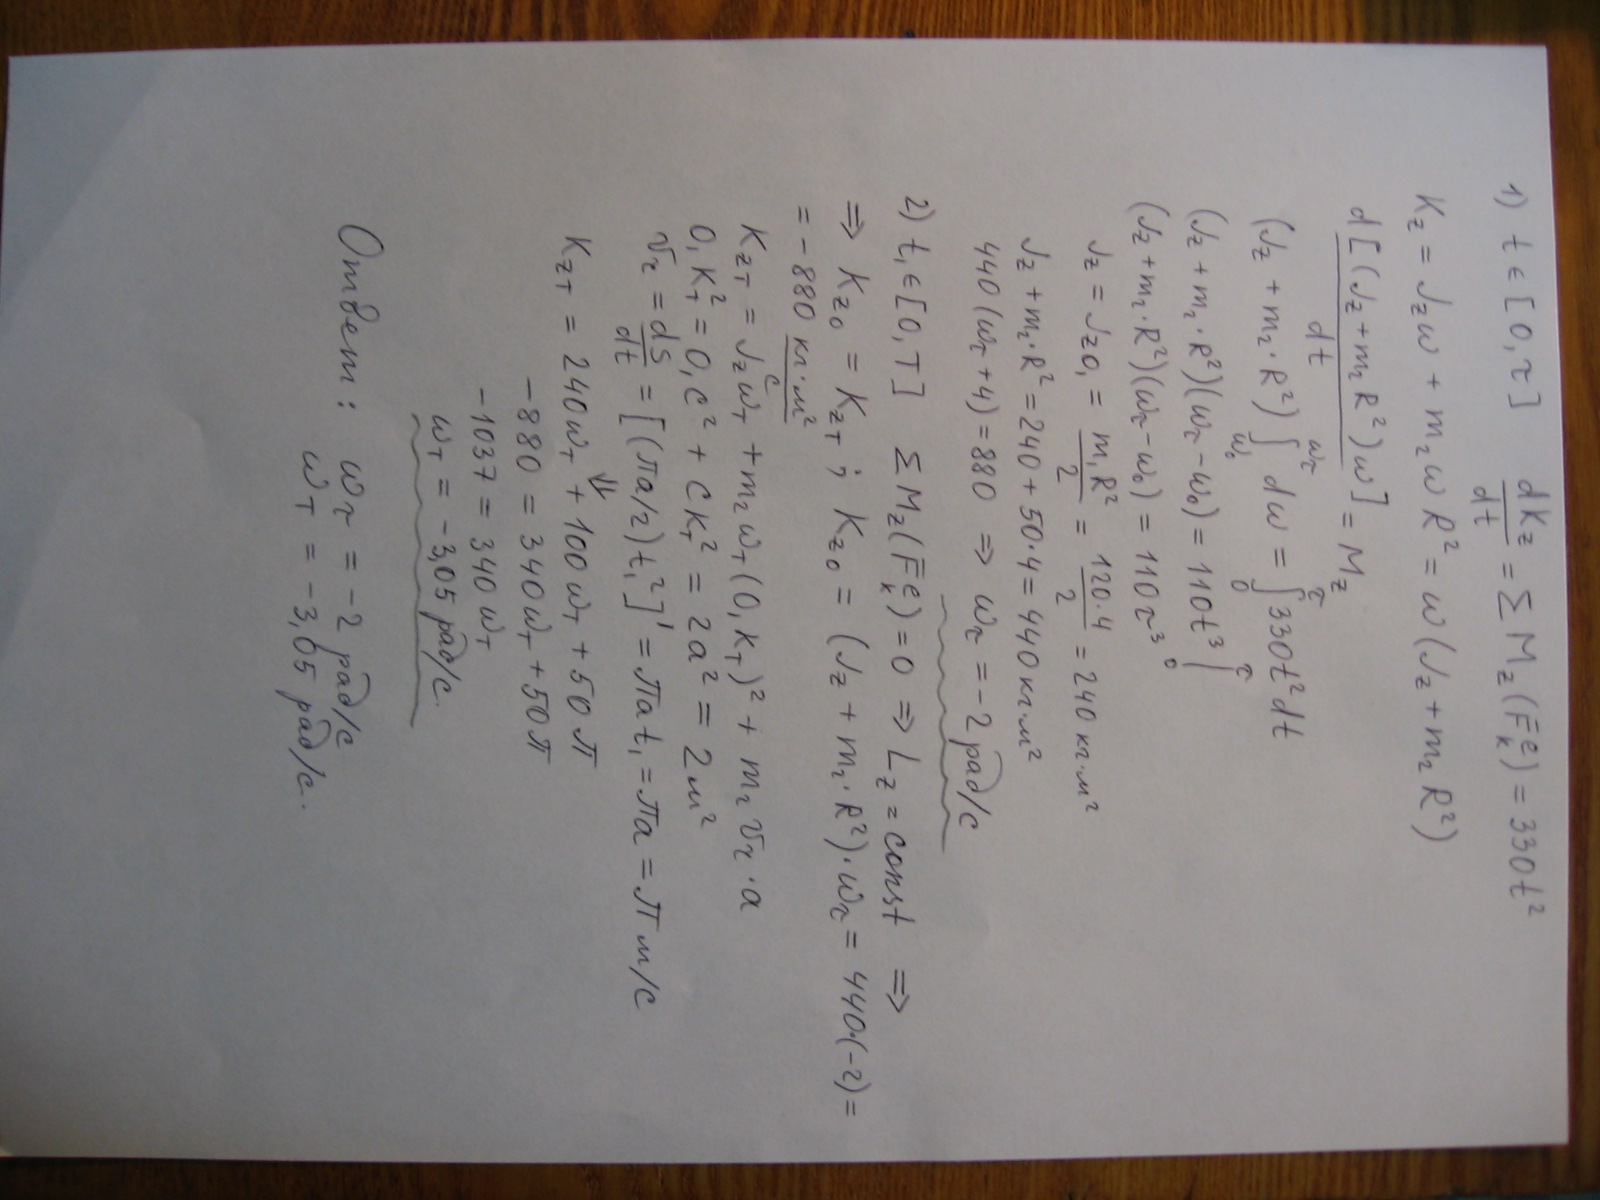 1) t ∈ [0, τ] dKz/dt = Σ Mz(F̄ₖᵉ) = 330t²
Kz = Jzω + m₂ωR² = ω(Jz + m₂R²)
d[(Jz + m₂R²)ω]/dt = Mz
(Jz + m₂·R²) ∫_ω₀^ωτ dω = ∫_0^τ 330t²dt
(Jz + m₂·R²)(ωτ - ω₀) = 110t³ |_0^τ
(Jz + m₂·R²)(ωτ - ω₀) = 110τ³
Jz = Jz0₁ = m₁R²/2 = 120·4/2 = 240 кг·м²
Jz + m₂·R² = 240 + 50·4 = 440 кг·м²
440(ωτ + 4) = 880 ⇒ ωτ = -2 рад/с
2) t₁ ∈ [0, T] Σ Mz(F̄ₖᵉ) = 0 ⇒ Lz = const ⇒
⇒ Kz₀ = KzT ; Kz₀ = (Jz + m₂·R²)·ωτ = 440·(-2) =
= -880 кг·м²/с
KzT = JzωT + m₂ωT(O₁KT)² + m₂vr·a
O₁KT² = O₁C² + CKT² = 2a² = 2м²
vr = ds/dt = [(πa/2)t₁²]' = πat₁ = πa = π м/с
⇓
KzT = 240ωT + 100ωT + 50π
-880 = 340ωT + 50π
-1037 = 340ωT
ωT = -3,05 рад/с.
Ответ: ωτ = -2 рад/с
ωT = -3,05 рад/с.